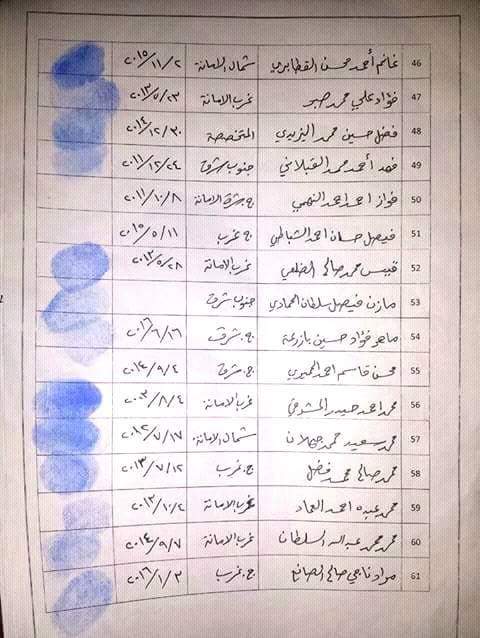 46 غانم أحمد محسن القطابري شمال الامانة ٢٠١٥/١١/٢
47 فؤاد علي محمد صبر غرب الامانة ٢٠١٣/٥/٢٣
48 فضل حسين محمد اليزيدي المتخصصة ٢٠١٤/١٢/٣٠
49 فهد أحمد محمد القبلاني جنوب شرق ٢٠١١/١٢/٢٤
50 فواز احمد احمد النهمي ج. شرق الامانة ٢٠١١/١٠/٨
51 فيصل حسان احمد الشباطي ج. غرب ٢٠١٥/٥/١١
52 قبيس محمد صالح الضلعي غرب الامانة ٢٠١٣/٥/٢٨
53 مازن فيصل سلطان الحمادي جنوب شرق
54 ماهر فؤاد حسين بازرعة ج. شرق ٢٠١٦/٦/١٦
55 محسن قاسم احمد الحميري ج. شرق ٢٠١٤/٩/٤
56 محمد احمد حيدر غرب الامانة ٢٠٠٣/٨/٤
57 محمد سعيد محمد جهلان شمال الامانة ٢٠١٢/٧/١٧
58 محمد صالح محمد فضل ج. غرب ٢٠١٣/٧/١٢
59 محمد عبده احمد العماد غرب الامانة ٢٠١٣/١٠/٢
60 محمد محمد عبدالله السلطان غرب الامانة ٢٠١٤/٩/٧
61 مراد ناجي صالح الصانع ج. غرب ٢٠١٦/١/٣